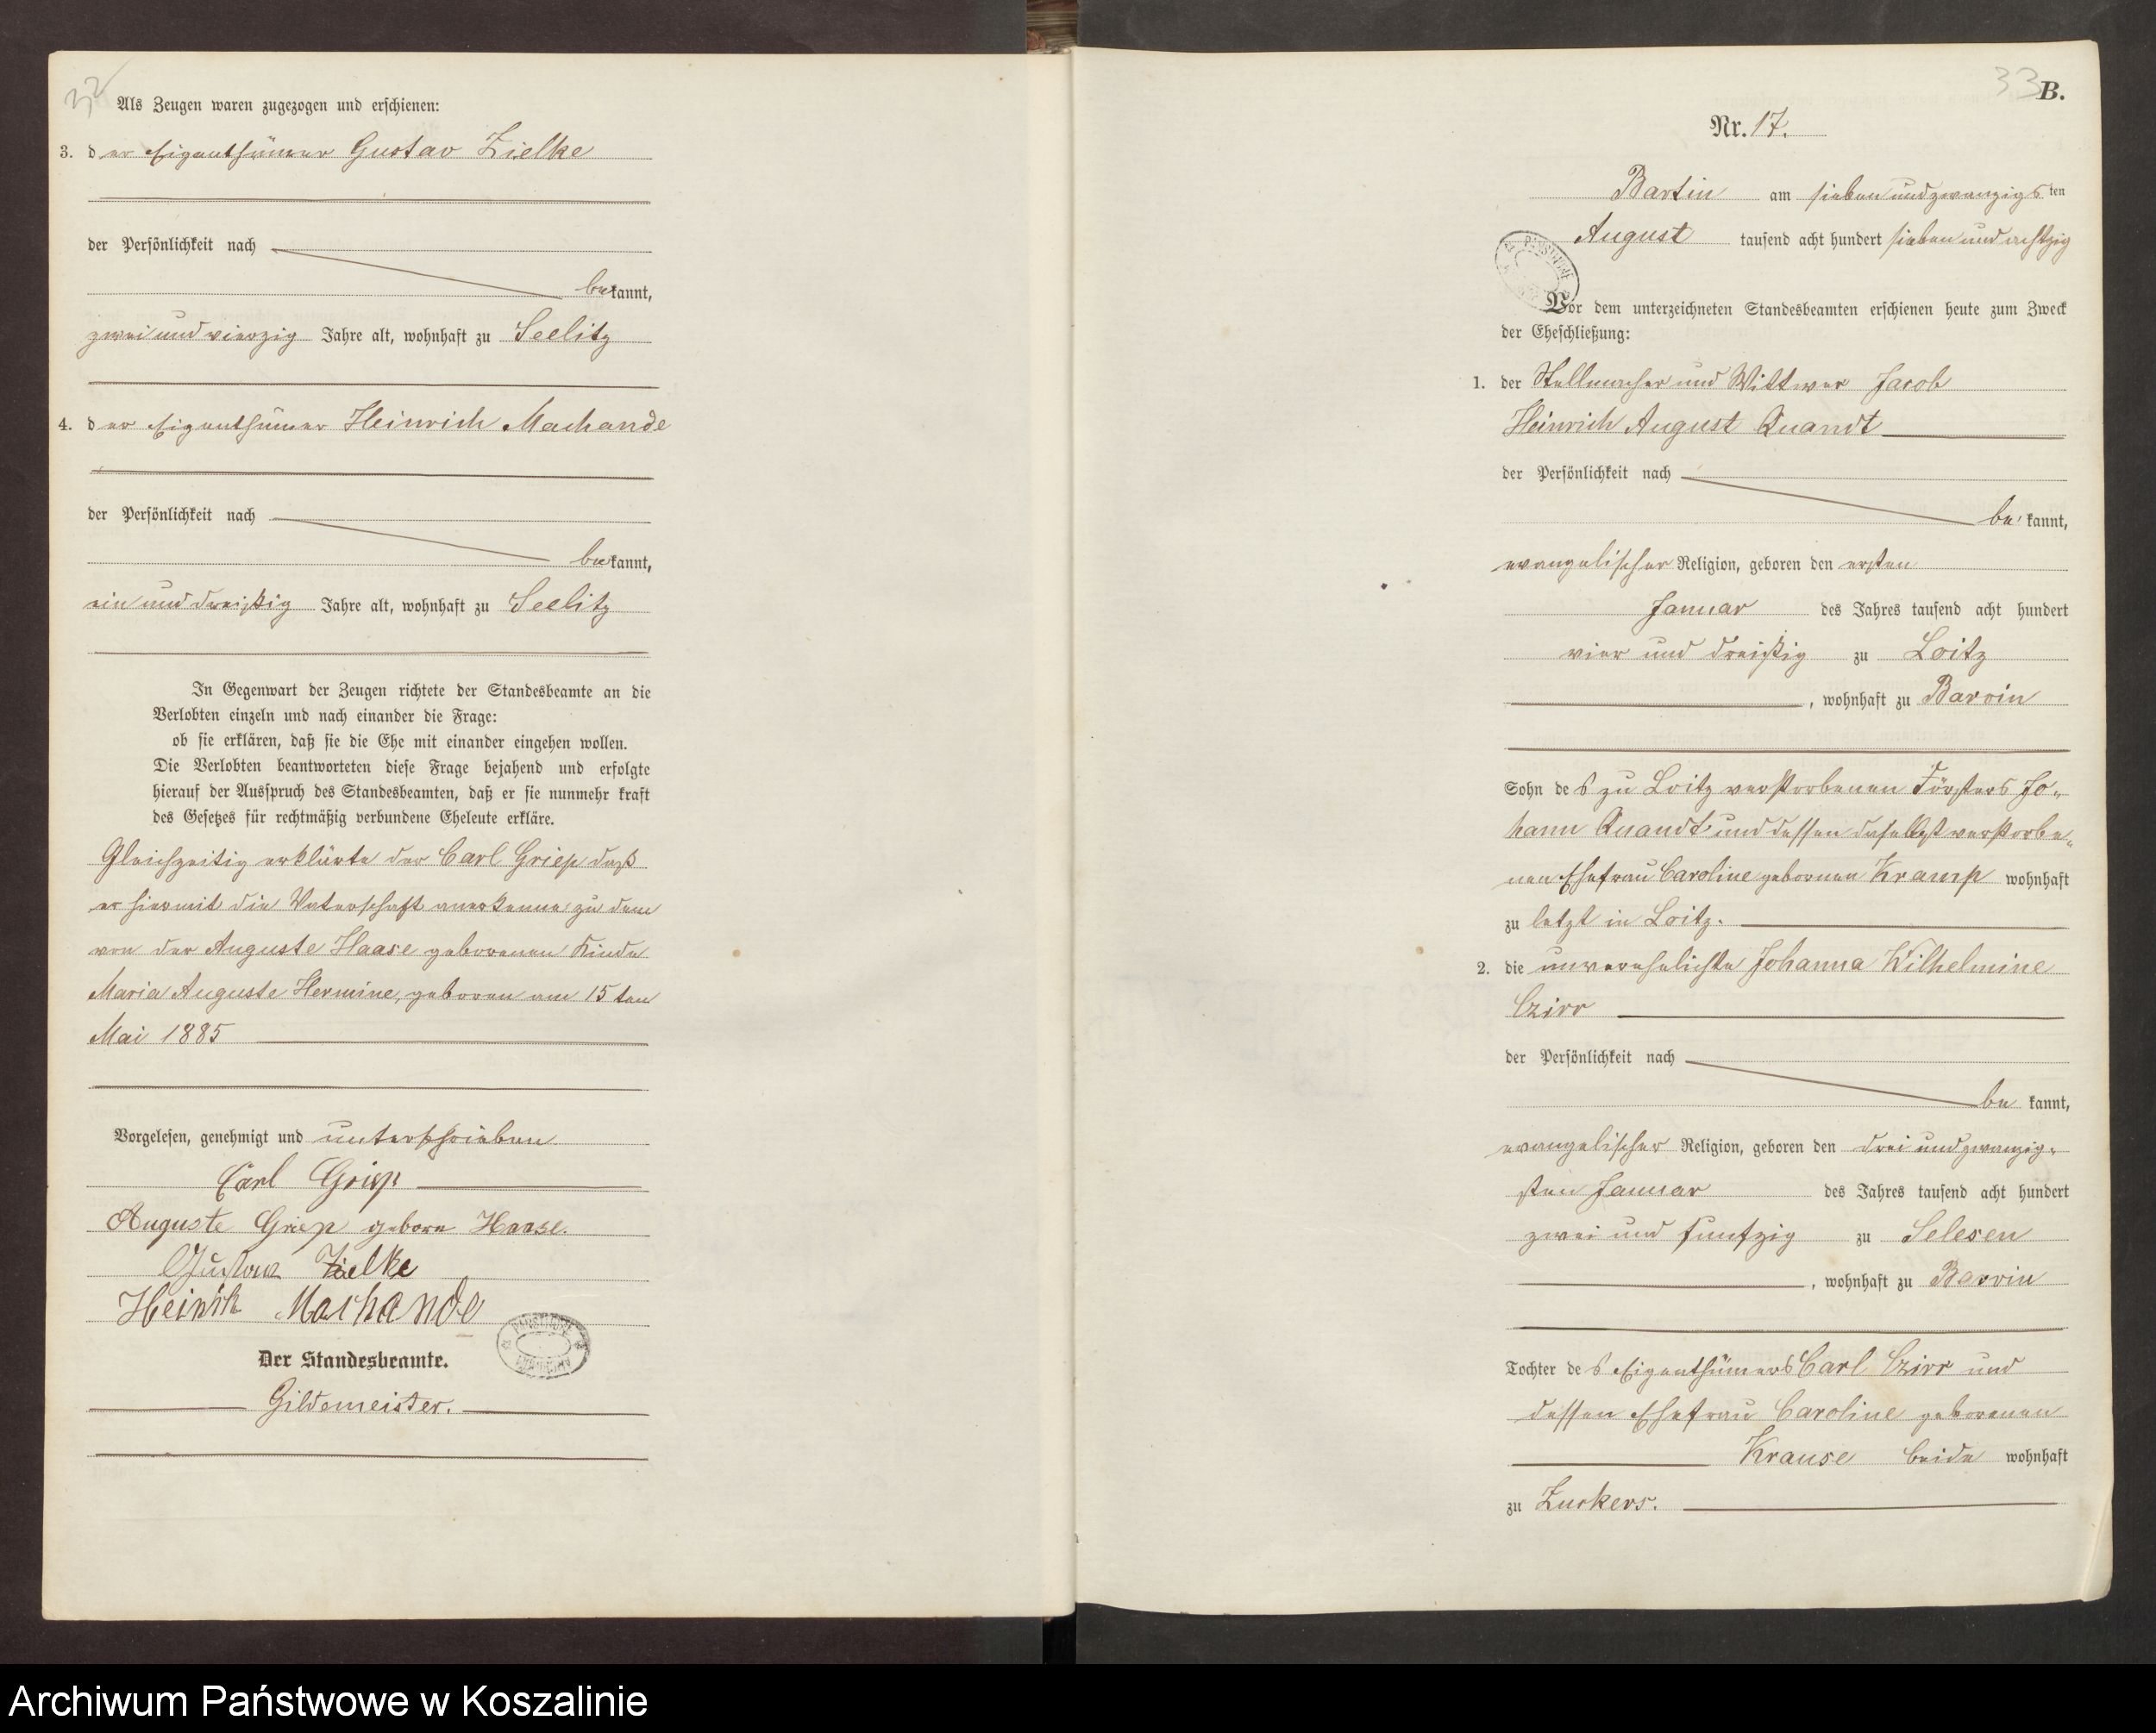 32
Als Zeugen waren zugezogen und erschienen:
3. der Eigenthümer Gustav Zielke
der Persönlichkeit nach
bekannt,
zwei und vierzig Jahre alt, wohnhaft zu Seelitz
4. der Eigenthümer Heinrich Machande
der Persönlichkeit nach
bekannt,
ein und dreißig Jahre alt, wohnhaft zu Seelitz
In Gegenwart der Zeugen richtete der Standesbeamte an die
Verlobten einzeln und nach einander die Frage:
ob sie erklären, daß sie die Ehe mit einander eingehen wollen.
Die Verlobten beantworteten diese Frage bejahend und erfolgte
hierauf der Ausspruch des Standesbeamten, daß er sie nunmehr kraft
des Gesetzes für rechtmäßig verbundene Eheleute erkläre.
Gleichzeitig erklärte der Carl Griep daß
er hiermit die Vaterschaft anerkenne zu dem
von der Auguste Haase geborenen Kinde
Maria Auguste Hermine, geboren am 15ten
Mai 1885
Vorgelesen, genehmigt und unterschrieben
Carl Griep
Auguste Griep geborn Haase.
Gustav Zielke
Heinrik Machande
Der Standesbeamte.
Gildemeister.
33
B.
Nr. 17.
Bartin am sieben und zwanzigsten
August tausend acht hundert sieben und achtzig
Vor dem unterzeichneten Standesbeamten erschienen heute zum Zweck
der Eheschließung:
1. der Stellmacher und Wittwer Jacob
Heinrich August Quandt
der Persönlichkeit nach
bekannt,
evangelischer Religion, geboren den ersten
Januar des Jahres tausend acht hundert
vier und dreißig zu Loitz
, wohnhaft zu Barvin
Sohn des zu Loitz verstorbenen Försters Jo„
hann Quandt und dessen daselbst verstorbe„
nen Ehefrau Caroline gebornen Kramp wohnhaft
zu letzt in Loitz.
2. die unverehelichte Johanna Wilhelmine
Czirr
der Persönlichkeit nach
bekannt,
evangelischer Religion, geboren den drei und zwanzig„
sten Januar des Jahres tausend acht hundert
zwei und funfzig zu Selesen
, wohnhaft zu Barvin
Tochter des Eigenthümers Carl Czirr und
dessen Ehefrau Caroline geborenen
Krause beide wohnhaft
zu Zuckers.
Archiwum Państwowe w Koszalinie